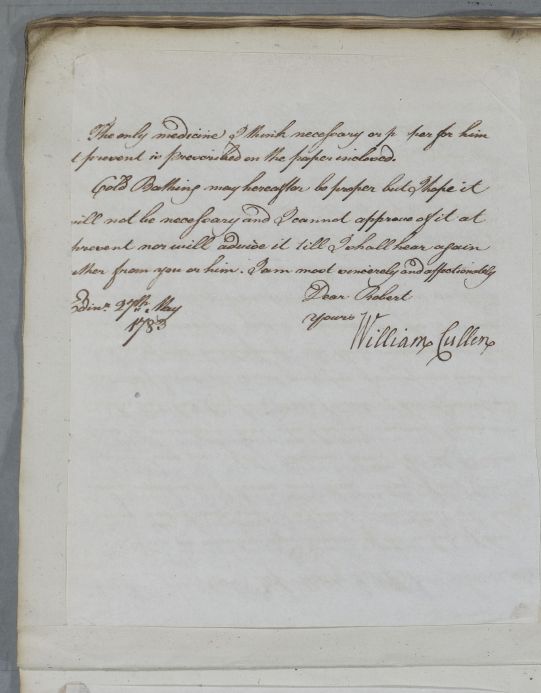 The only medicine I think necessary or p per for him
t present is prescribed on the paper inclosed.
Cold Bathing may hereafter be proper but I hope it
will not be necessary and I cannot approve of it at
present nor will advise it till I shall hear again
ither from you or him. I am most sincerely and affectionately
Dear Robert
Edinr. 27th. May
yours
1783
William Cullen